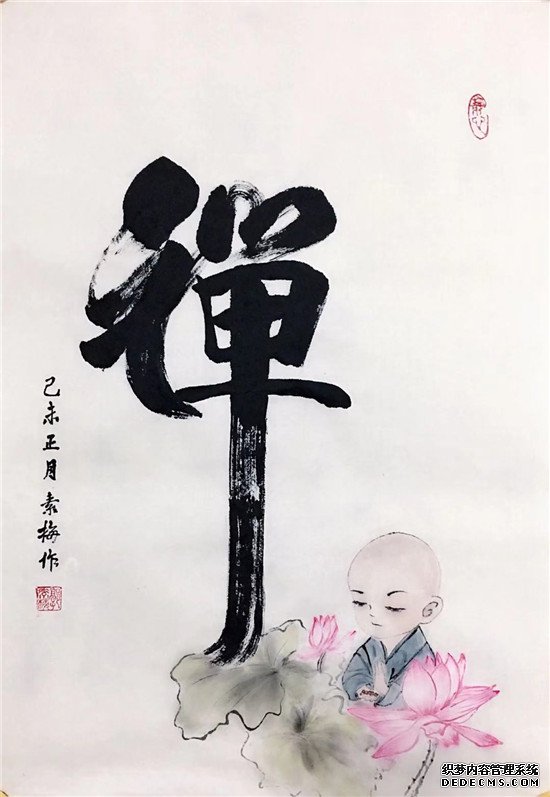 禅
己未正月素梅作
织梦内容管理系统
DEDECMS.COM